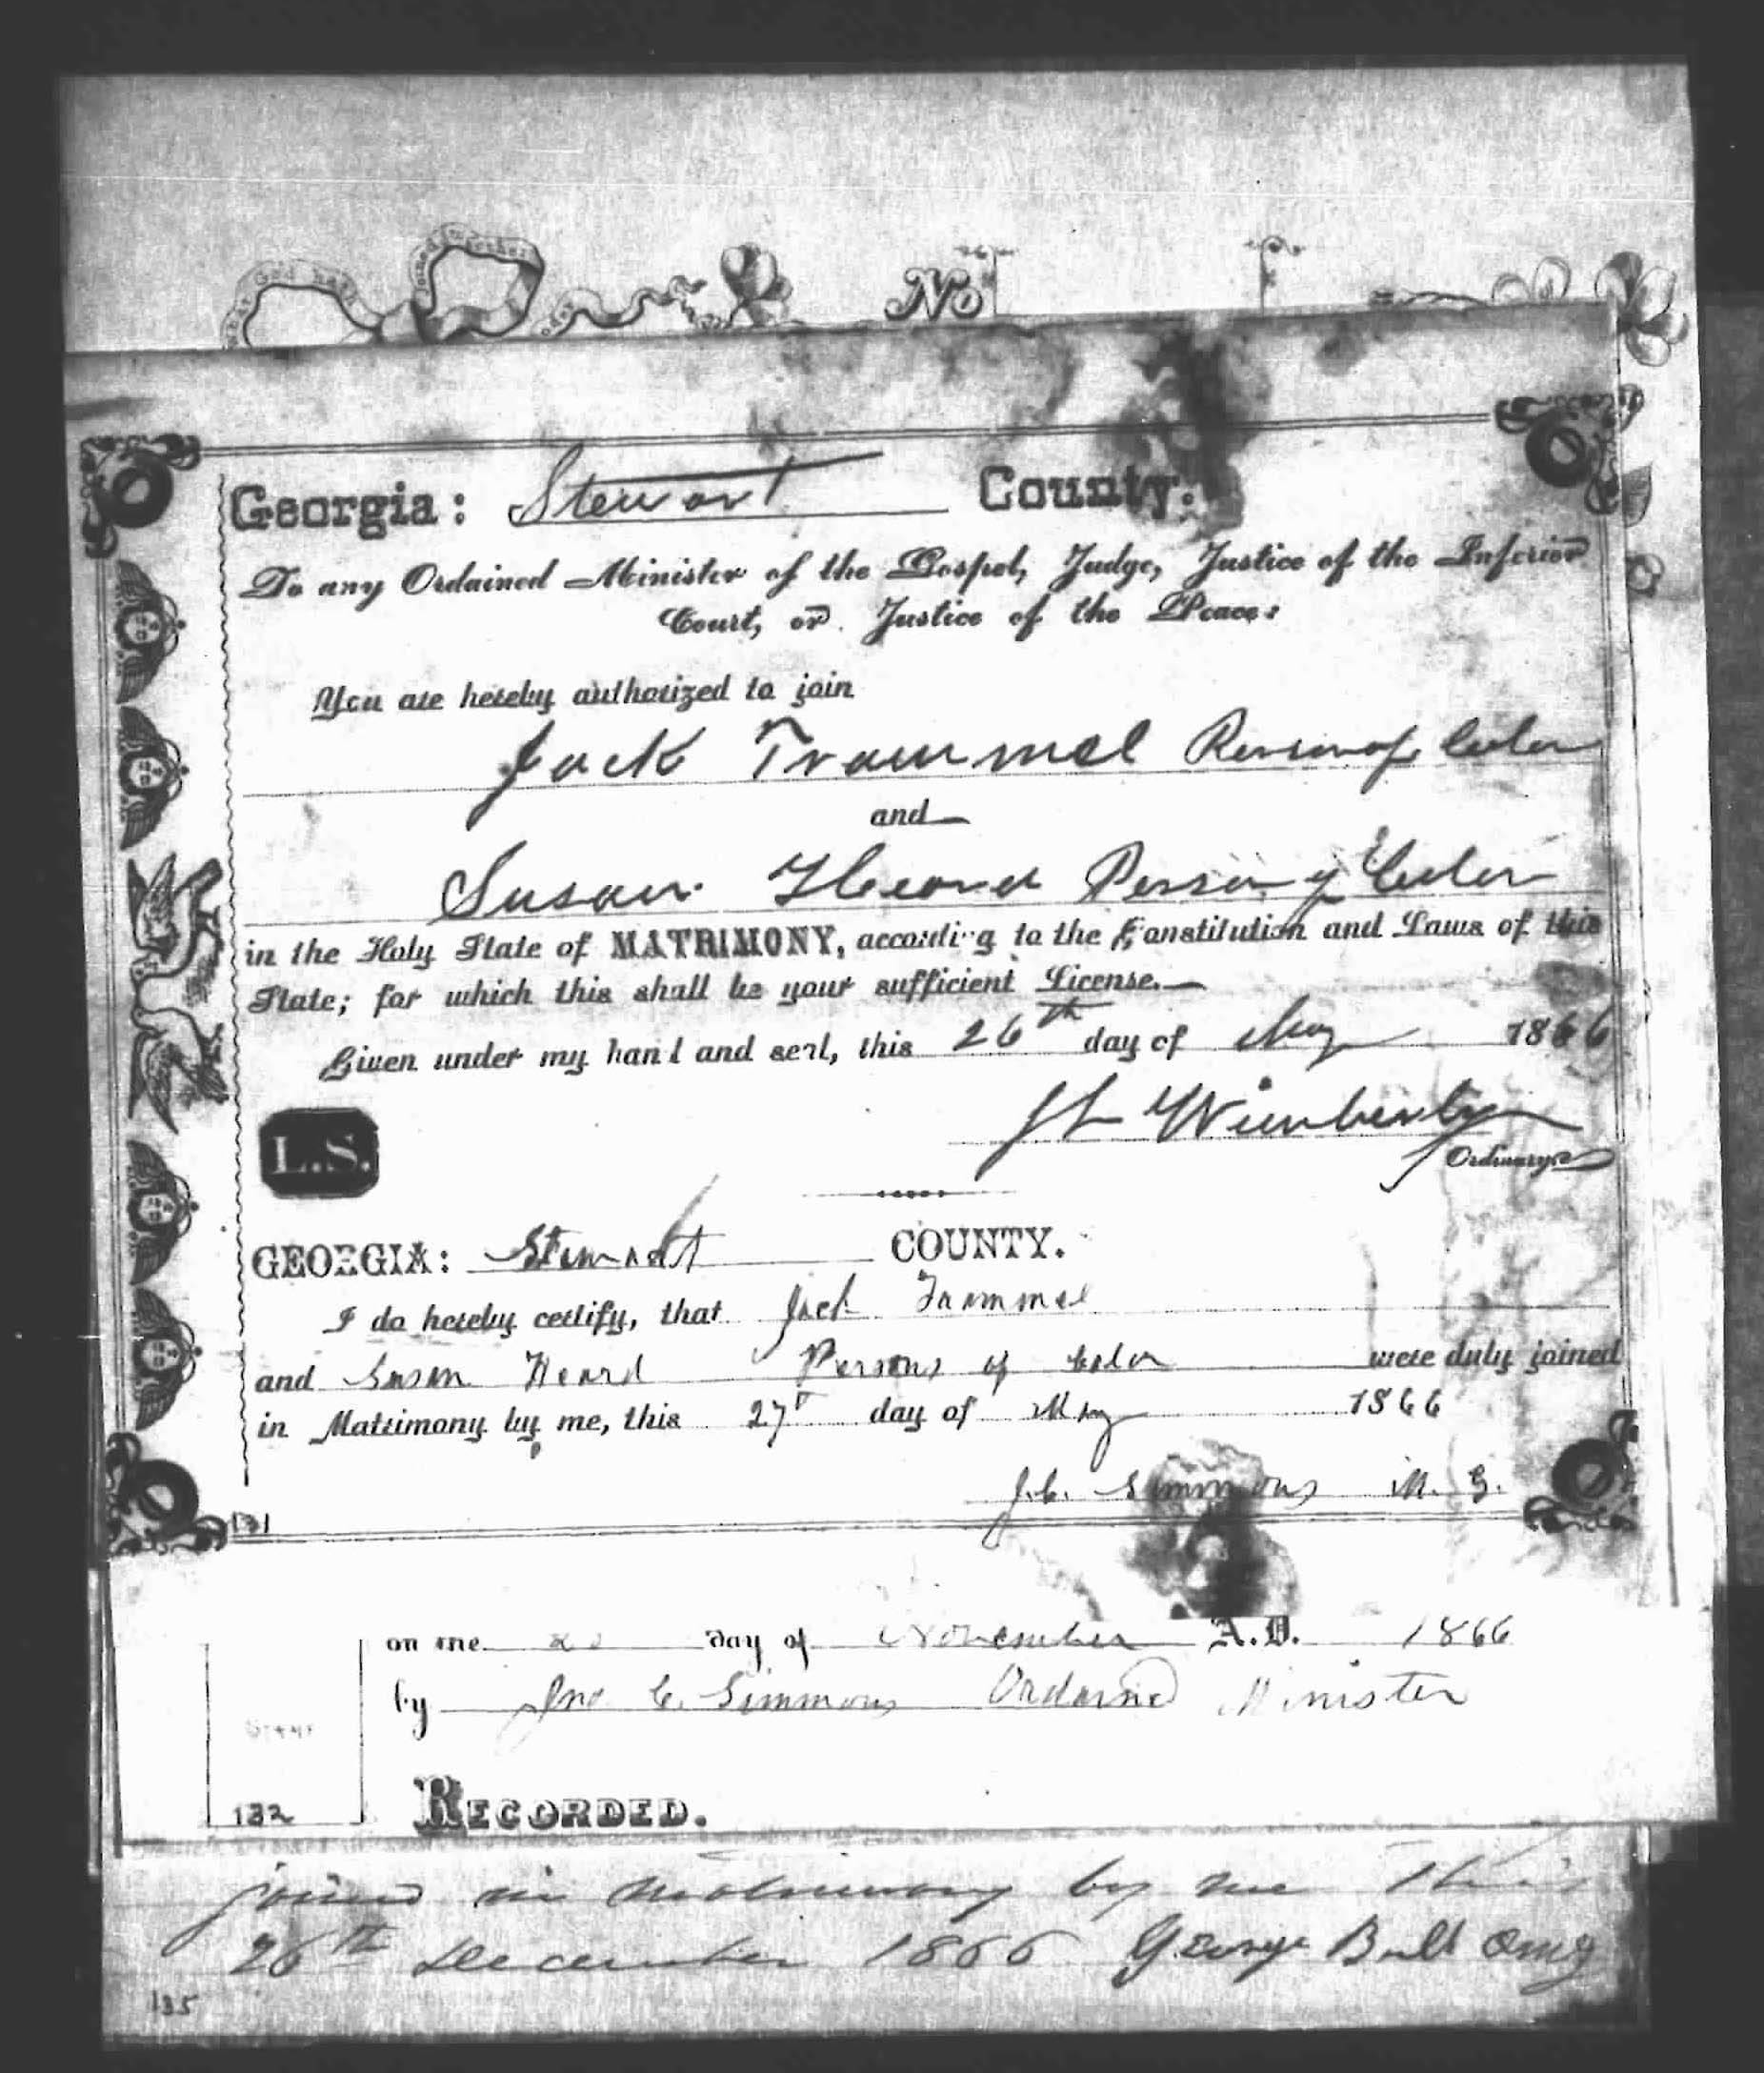 what God hath joined together
No
Georgia: Stewart County.
To any Ordained Minister of the Gospel, Judge, Justice of the Inferior
Court, or Justice of the Peace:
You are hereby authorized to join
Jack Trammel Person of Color
and
Susan Heard Person of Color
in the Holy State of MATRIMONY, according to the Constitution and Laws of this
State; for which this shall be your sufficient License.
Given under my hand and seal, this 26th day of May 1866
JL Wimberly
Ordinary
L.S.
GEORGIA: Stewart COUNTY.
I do hereby certify, that Jack Trammel
and Susan Heard Persons of Color were duly joined
in Matrimony by me, this 27th day of May 1866
J.C. Simmons M. G.
131
on me day of November A.D. 1866
by Jno C. Simmons Ordained Minister
132
RECORDED.
joined in matrimony by me this
26th December 1866 George Ball OMG
135